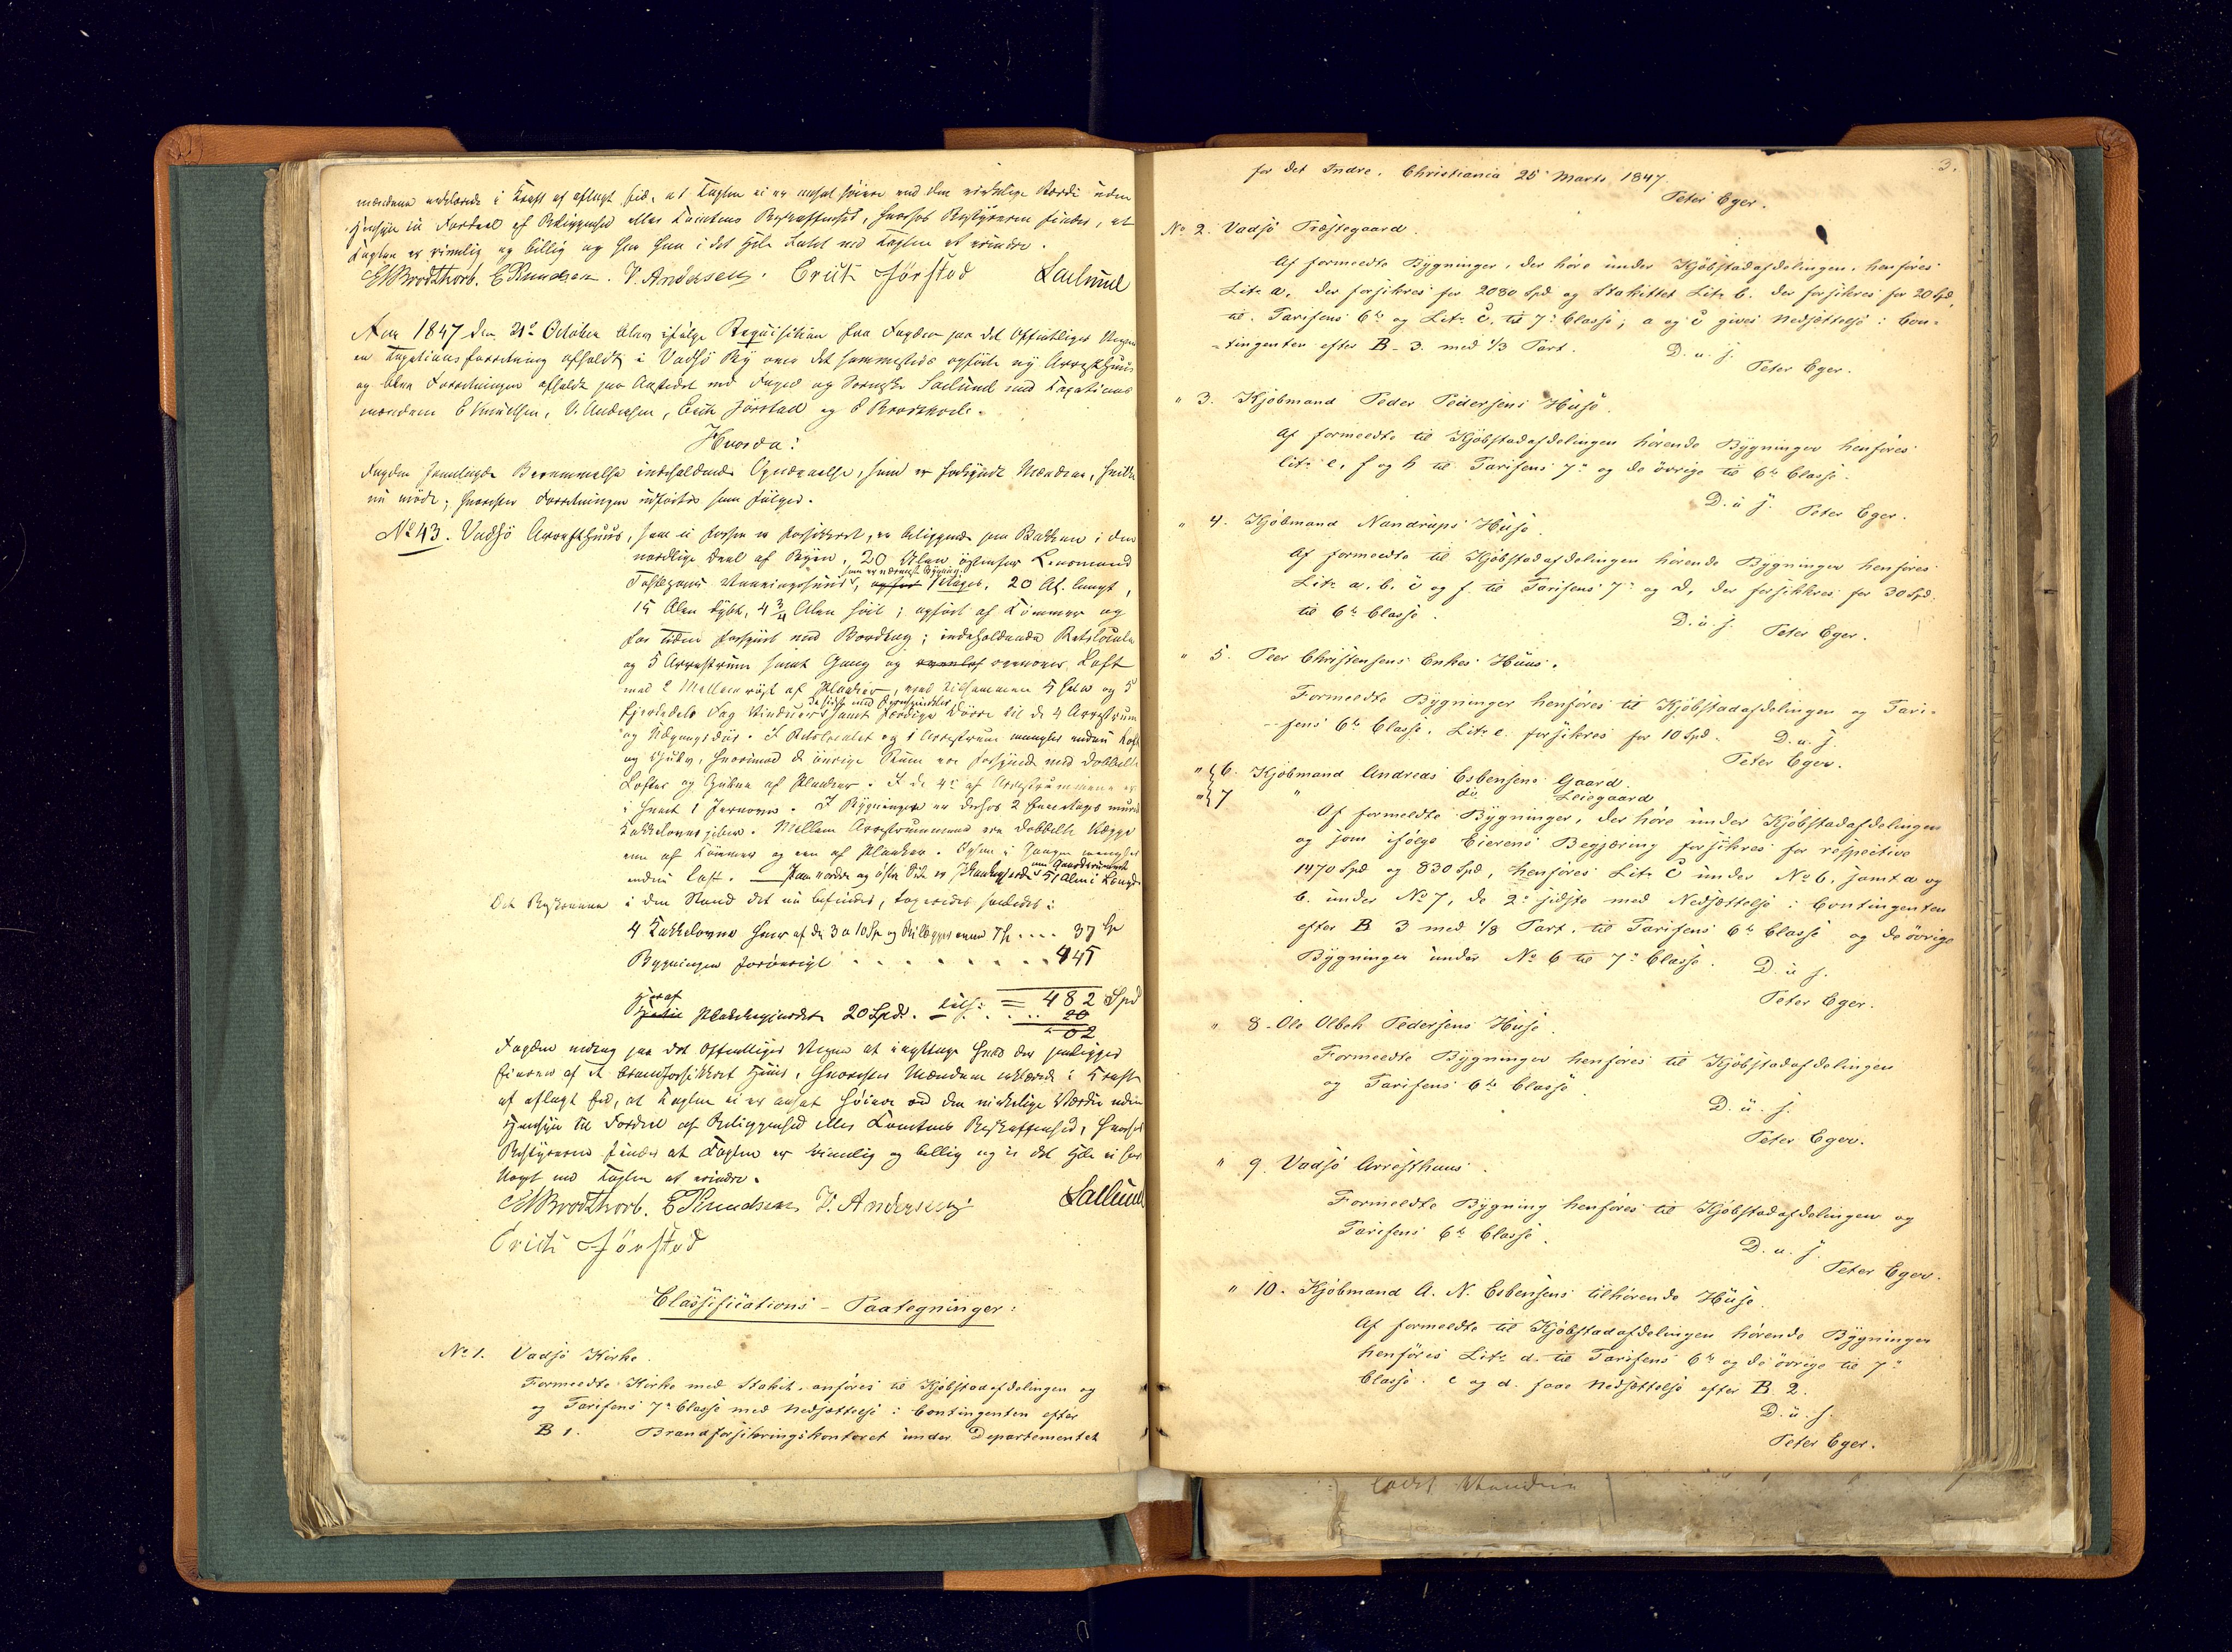 mændene erklærede i Kraft af aflagt Eed, at Taxten ei er ansat høiere end den virkelige Værdi uden
Hensyn til Fordeel af Beliggenhed eller Tomtens Beskaffenhed, hvorhos Bestyreren finder, at
Taxten er rimelig og billig og har han i det Hele Intet ved Taxten at erindre.
E Knudsen. V. Andersen. Erich Jörstad
Aar 1847 den 21de October blev ifølge Requisition fra Fogden paa det Offentliges Vegne
en Taxationsforretning afholdt i Vadsö By over det sammesteds opförte ny Arresthuus
og blev Forretningen afholdt paa Aastedet ved Foged og Sorenskr. med Taxations
mændene E Knudsen, V. Andersen, Erich Jörstad og E Brodtkorb.
Hvorda:
Fogden fremlagde Berammelse indeholdende Opnævnelse, som er forkyndt Mændene, hvilke
nu møde; hvorefter Forretningen udførtes som følger.
No 43. Vadsö Arresthuus, som ei forhen er forsikkret, er beliggende paa Bakken i den
nordlige Deel af Byen, 20 Alen östenfor
som er nærmeste Bygning
Vaaningshuus, opført 1 Etages, 20 Al. langt,
15 Alen dybt, 4 3/4 Alen høit; opført af Tømmer og
for Tiden forsynt med Bordtag; indeholdende Retslocale
og 5 Arrestrum samt Gang og ovenover Loft
med 2 af Planker, med tilsammen 5 hele og 5
fjerdedels Fag Vinduer samt færdige Dörre til de 4 Arrestrum
og Udgangsdör. I Retslocalet og 1 Arrestrum mangler endnu Loft
og Gulv, hvorimod de øvrige Rum ere forsynede med dobbelte
Lofter og Gulve af Planker. I de 4re af Arrestrummene er
i hvert 1 Jernovn. I Bygningen er derhos 2 Etages
Kakkelovnspiber. Mellem Arrestrummene ere dobbelte Vægge
een af Tømmer og een af Planker. Ogsaa i Gangen mangler
om Gaardsrummet
endnu Loft. Paa nordre og østre Side er 51 Alen i Længde
i den Stand det nu befindes, taxeredes saaledes:
4 Kakkelovne hver af de 3 a 10 Sp og 7 Sp .... 37 Sp
Bygningen forøvrigt . . . . . . . . 445
= 482 Spd
heraf
Plankegjerdet 20 Spd. . . . . 20
Fogden vedtog paa det Offentliges Vegne at iagttage hvad der paaligger
Eieren af et brandforsikkret Huus, hvorefter Mændene erklærede i Kraft
af aflagt Eed, at Taxten ei er ansat høiere end den virkelige Værdie uden
Hensyn til Fordeel af Beliggenhed eller Tomtens Beskaffenhed, hvorhos
Bestyreren finder at Taxten er rimelig og billig og i det Hele ei har
Noget ved Taxten at erindre.
E Knudsen V. Andersen
Erich Jörstad
Classifications - Paategninger:
No 1. Vadsö Kirke.
Formeldte Kirke med Stakit, anföres til Kjöbstadafdelingen og
og Tarifens 7de Classe med Nedsættelse i Contingenten efter
B 1. Brandforsikringskontoret under Departementet
3.
for det Indre. Christiania 25 Marts 1847.
Peter Eger.
No 2. Vadsö Præstegaard.
Af formeldte Bygninger, der höre under Kjöbstadafdelingen, henföres
Litr a, der forsikres for 2080 Spd og Stakittet Litr b. der forsikres for 20 Spd,
til Tarifens 6te og Litr c. til 7de Classe; a og c gives Nedsættelse i Con-
-tingenten efter B. 3. med 1/3 Part.
D. u. s.
Peter Eger.
" 3. Kjöbmand Peder Pedersens Huse.
Af formeldte til Kjöbstadafdelingen hörende Bygninger henföres
litr e, f og h til Tarifens 7de og de övrige til 6te Classe.
D. u. s. Peter Eger.
" 4. Kjöbmand Nandrups Huse
Af formeldte til Kjöbstadafdelingen hörende Bygninger henföres
Litr a. b. c og f. til Tarifens 7de og d, der forsikkres for 30 Spd.
til 6te Classe.
D. u. s. Peter Eger.
" 5. Peer Christensens Enkes Huus.
Formeldte Bygninger henföres til Kjöbstadafdelingen og Tari-
-fens 6te Classe. Litr e. forsikres for 10 Spd.
D. u. s.
Peter Eger.
" 6. Kjöbmand Andreas Esbensens Gaard.
" 7 " do. Leiegaard
Af formeldte Bygninger, der höre under Kjöbstadafdelingen
og som ifölge Eierens Begjæring forsikres for respective
1470 Spd og 830 Spd, henföres Litr c under No 6. samt a og
b. under No 7, de 2de sidste med Nedsættelse i Contingenten
efter B 3 med 1/8 Part. til Tarifens 6te Classe og de övrige
Bygninger under No 6 til 7de Classe.
D. u. s.
Peter Eger.
" 8. Ole Olbek Pedersens Huse.
Formeldte Bygninger henföres til Kjöbstadafdelingen
og Tarifens 6te Classe
D. u. s.
Peter Eger.
" 9. Vadsö Arresthuus.
Formeldte Bygning henföres til Kjöbstadafdelingen og
Tarifens 6te Classe.
D. u. s.
Peter Eger.
" 10. Kjöbmand A. N. Esbensens tilhörende Huse.
Af formeldte til Kjöbstadafdelingen hörende Bygninger
henföres Litr d. til Tarifens 6te og de övrige til 7de
Classe. c og d. faae Nedsættelse efter B 2.
D. u. s.
Peter Eger.